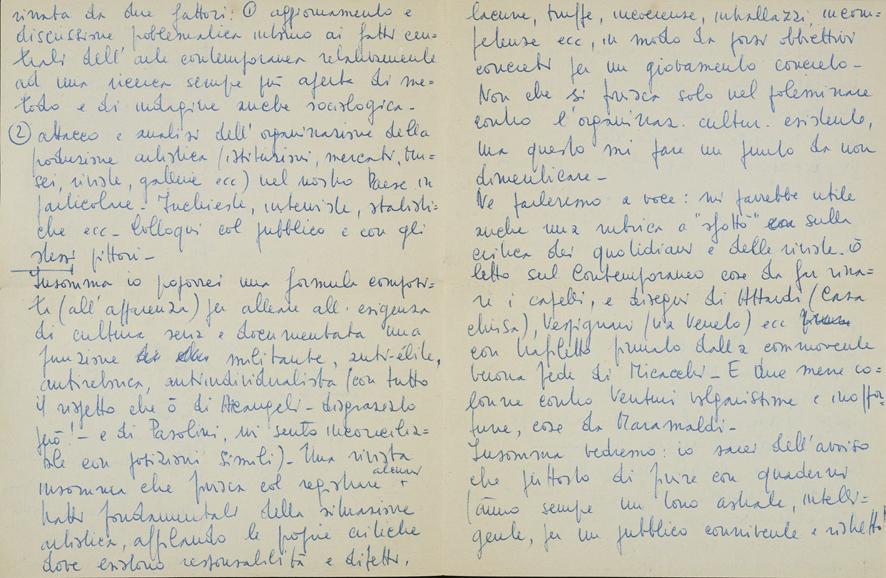 da due fattori: ① aggiornamento e
discussione problematica intorno ai fatti cen=
trali dell'arte contemporanea relativamente
ad una ricerca sempre più aperta di me=
todo e di indagine anche sociologica -
② attacco e analisi dell'organizzazione della
produzione artistica (istituzioni, mercati, mu=
sei, riviste, gallerie ecc) nel nostro Paese in
particolare - Inchieste, interviste, statisti=
che ecc - Colloqui col pubblico e con gli
stessi pittori -
Insomma io proporrei una formula composi=
ta (all'apparenza) per alleare all'esigenza
di cultura seria e documentata una
funzione militante, anti-élite,
antiretorica, antiindividualista (con tutto
il rispetto che ò di Arcangeli - disprassato
però! - e di Pasolini, mi sento inconcilia=
bile con posizioni simili) - Una rivista
insomma che finisca col registrare alcuni
tratti fondamentali della situazione
artistica, affilando le proprie critiche
dove esistono responsabilità e difetti,
lacune, truffe, incoerenze, imballazzi, incom=
petenze ecc, in modo da porsi obbiettivi
concreti per un giovamento concreto -
Non che si finisca solo nel polemizzare
contro l'organizzaz. cultur. esistente,
ma questo mi pare un punto da non
dimenticare -
Ne parleremo a voce: mi parrebbe utile
anche una rubrica a "sfottò" sulla
critica dei quotidiani e delle riviste. Ò
letto sul Contemporaneo cose da far riza=
re i capelli, e disegni di Attardi (Casa
chiusa), Vespignani (Via Veneto) ecc
con trafiletto firmato dalla commovente
buona fede di Micacchi - E due mezze co=
lonne contro Venturi volgarissime e inoppor=
tune, cose da Maramaldi -
Insomma vedremo: io sarei dell'avviso
che piuttosto di finire con quaderni
(ànno sempre un tono astrale, intelli=
gente, per un pubblico connivente e ristretto!